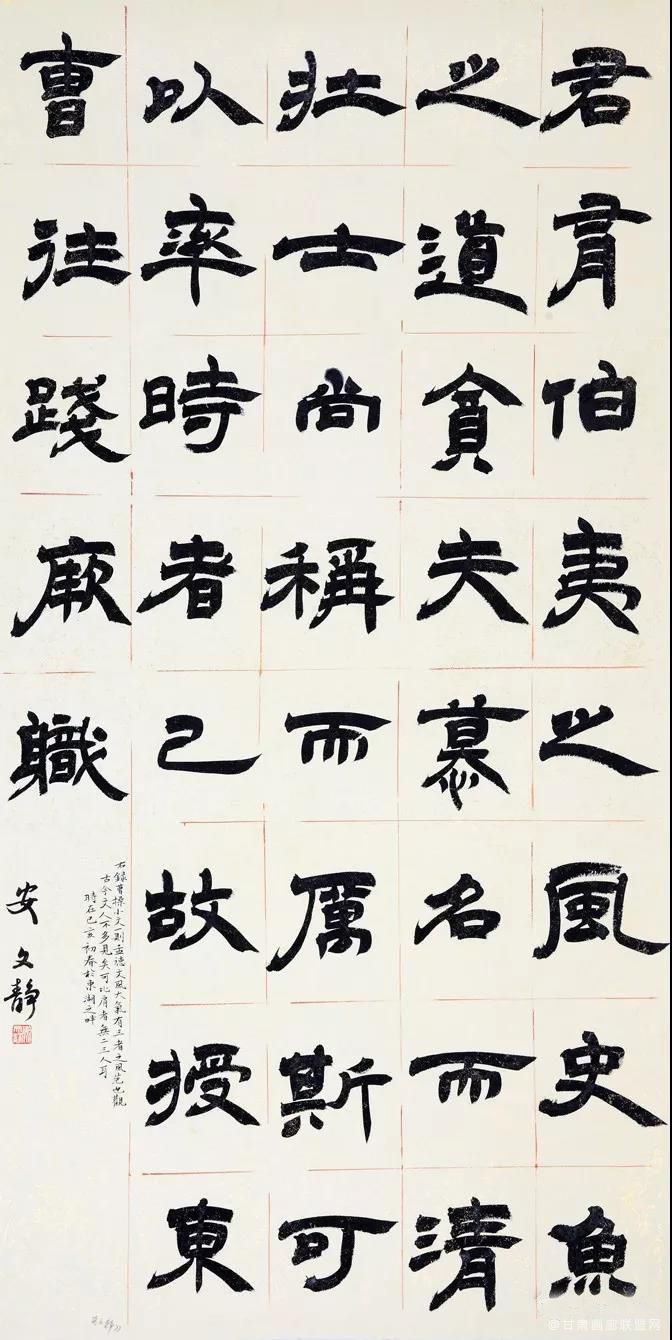 君胥伯夷之風史魚
之道貪夫慕名而清
壯士尚稱而厲斯可
以率時者已故授東
曹往踐厥職
右錄曹操小文一則孟德文風大氣有王者之風范也觀
古今文人不多見矣可比肩者無二三人耳
時在己亥初春於東湖之畔
安文靜
@甘肃画廊联盟网